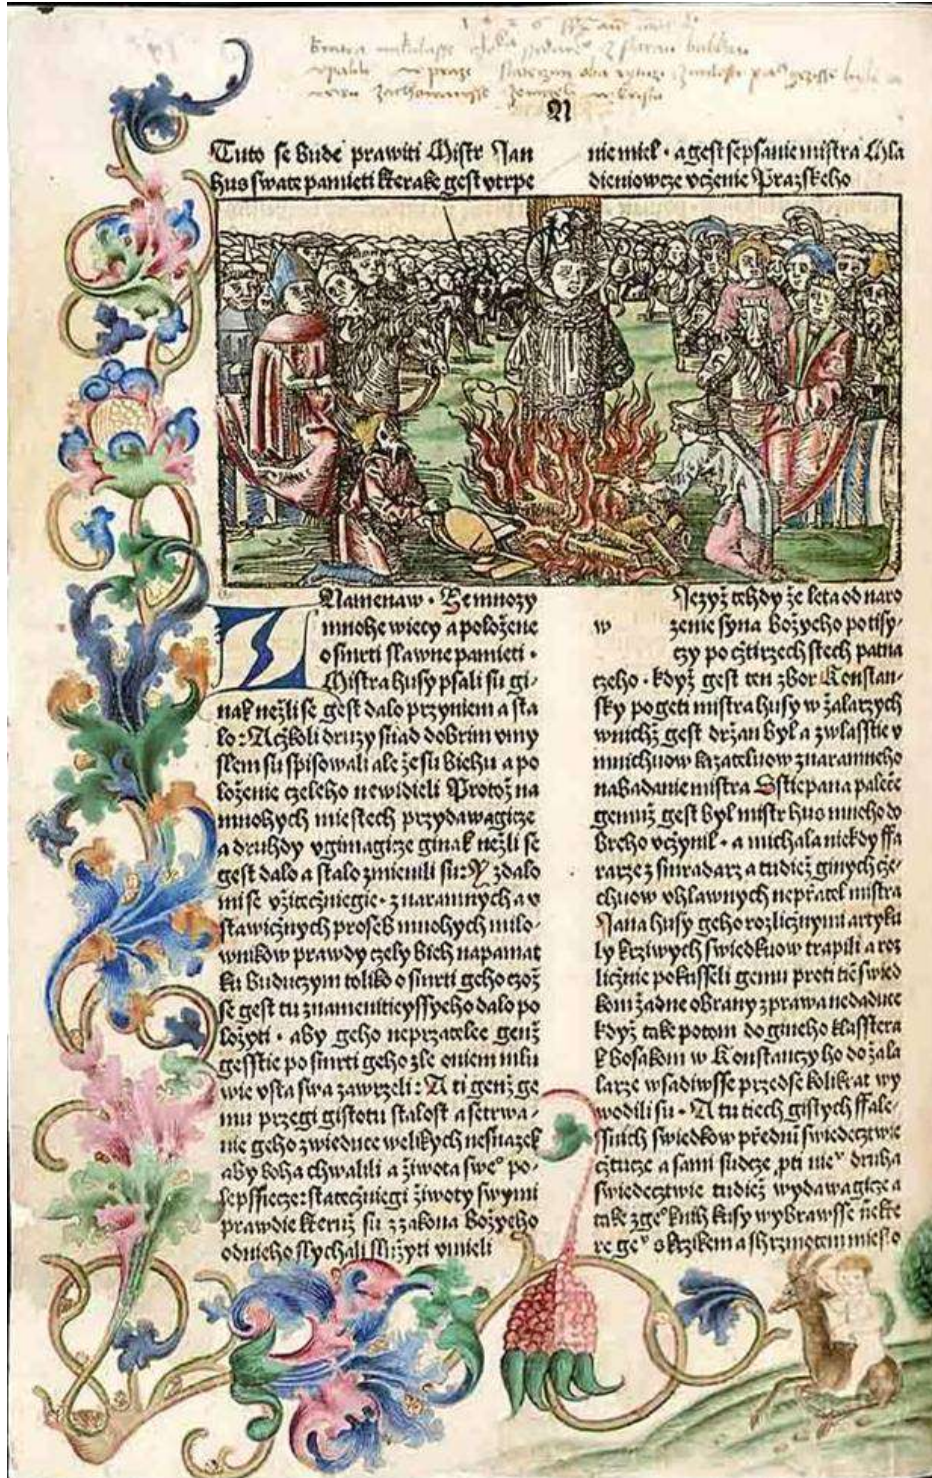 1 5 2 6
A
Tuto se bude prawiti Mistr Jan
hus swate pamieti kterake gest vtrpe
nie miel · a gest sepsanie mistra Mla
dieniowcze vczenie Prazskeho
Namenaw · Ze mnozy
mnohe wiecy a položene
o smrti slawne pamieti ·
Mistra husy psali su gi-
nak nežli se gest dalo przyniem a sta
lo: Ačžkoli druzy snad dobrim vmy
slem su spisowali ale že su biehu a po
loženie czeleho newidieli Protož na
mnohych miestech przydawagicze
a druhdy vgimagicze ginak nežli se
gest dalo a stalo zmienili su: Y zdalo
mi se vžiteczniegie · z naramnych a v
stawičznych proseb mnohych milo-
wnikow prawdy czely bich napamat
ku buduczym toliko o smrti geho czož
se gest tu znamenitieyssyeho dalo po
ložyti · aby geho neprzatelee genž
gesstie po smrti geho zle oniem mlu
wie vsta swa zawrzeli: A ti genž ge
mu przegi gistotu stalost a setrwa-
nie geho zwieduce welikych nesnazek
aby boha chwalili a žiwota sweº po-
lepssiecze: stateczniegi žiwoty swymi
prawdie kteruž su z zakona božyeho
odnieho slychali služyti vmieli
Jezyž tehdy že leta od naro
w zenie syna božyeho po tisy-
czy po cžtirzech stech patna
czeho · když gest ten zbor Konstan-
sky pogeti mistra husy w žalarzych
wnichž gest držan byl a zwlasstie v
mnichuow kazateluow z naramneho
nabadanie mistra Sstiepana palcže
gemuž gest byl mistr hus mnoho do
breho vczynil · a michala niekdy ffa
rarze z smradarz a tudiež ginych cže-
chuow vhlawnych nepřatel mistra
Jana husy geho rozlicznymi artyku
ly krziwych swiedkuow trapili a roz
licžnie pokusseli gemu proti tie swied
kom žadne obrany z prawa nedaduce
když take potom do gineho klasstera
k bosakom w Konstanczy ho do žala
larze wsadiwsse przedse kolikrat wy
wodili su · A tu tiech gistych ffale-
ssnich swiedkow přednij swiedecztwie
cžtucze a sami sudcze pti nieᵛ druha
swiedecztwie tudiež wydawagicze a
take z geº knih kusy wybrawsse niekte
re geᵛ s krzikem a s hrzmotem miesto